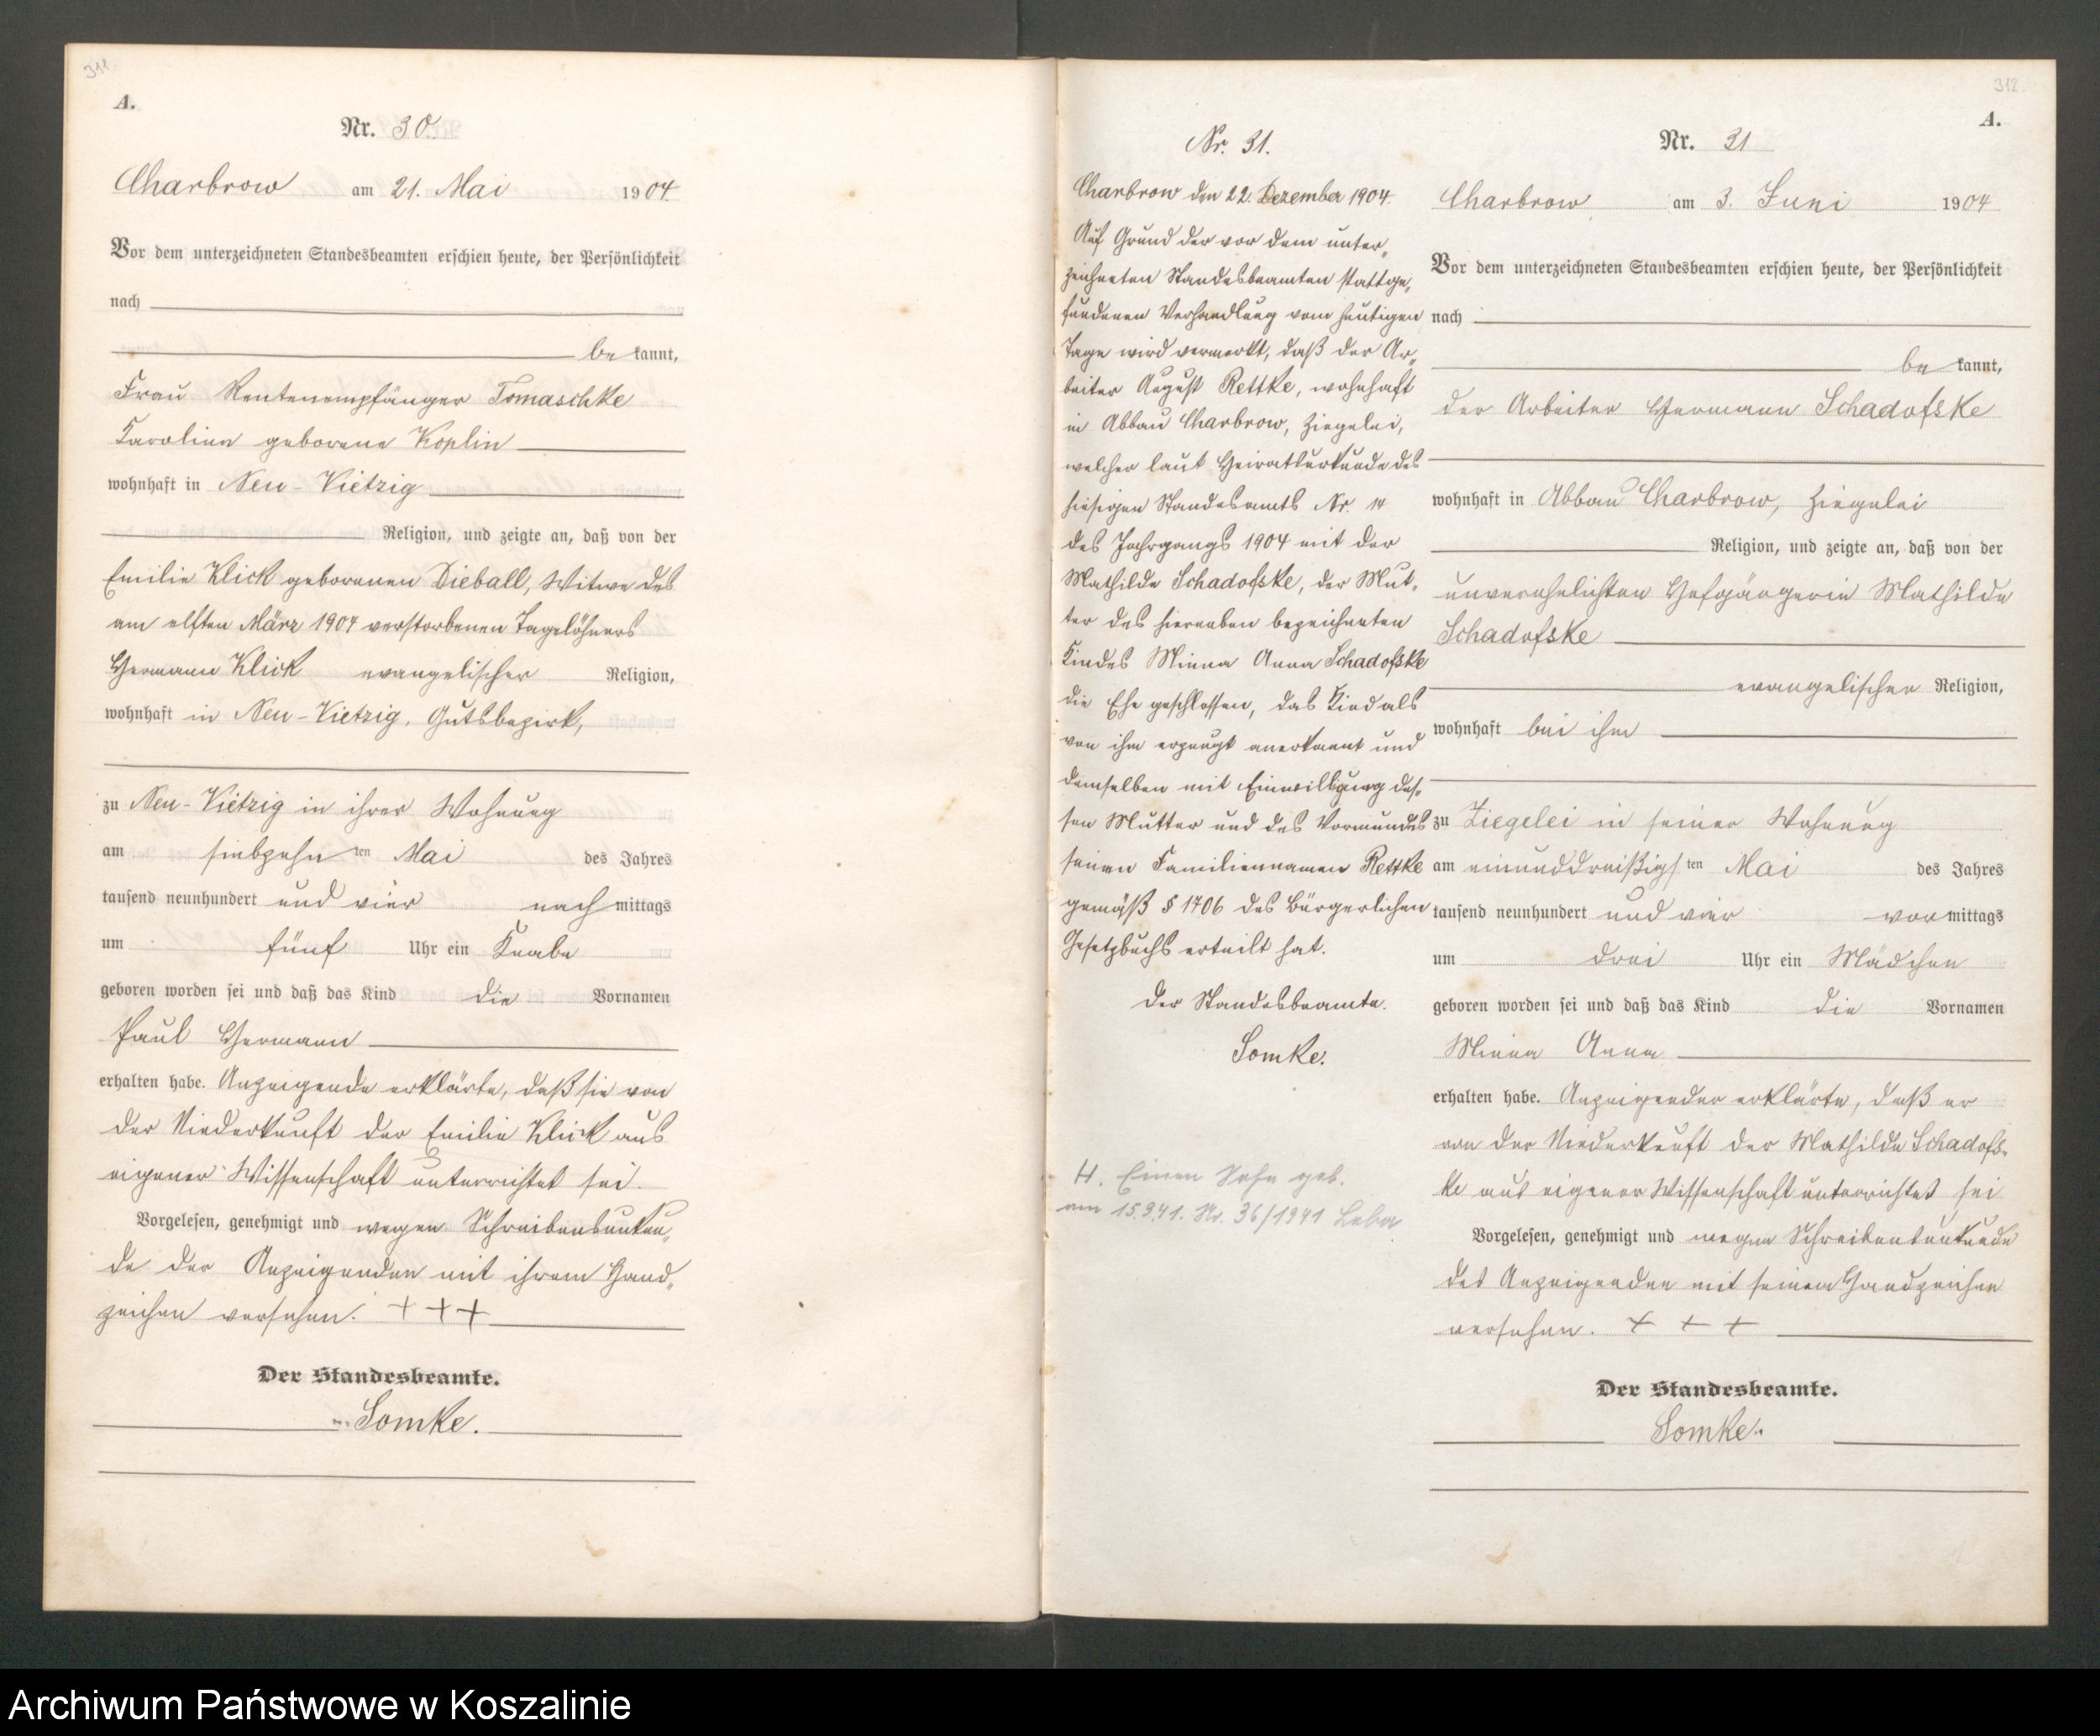 311
A.
Nr. 30.
Charbrow am 21. Mai 1904.
Vor dem unterzeichneten Standesbeamten erschien heute, der Persönlichkeit
nach
be kannt,
Frau Rentenempfänger Tomaschke
Karoline geborene Koplin
wohnhaft in Neu-Vietzig
Religion, und zeigte an, daß von der
Emilie Klick geborenen Dieball, Witwe des
am elften März 1904 verstorbenen Tagelöhners
Hermann Klick evangelischer Religion,
wohnhaft in Neu-Vietzig, Gutsbezirk,
zu Neu-Vietzig in ihrer Wohnung
am siebzehn ten Mai des Jahres
tausend neunhundert und vier nach mittags
um fünf Uhr ein Knabe
geboren worden sei und daß das Kind die Vornamen
Paul Hermann
erhalten habe. Anzeigende erklärte, daß sie von
der Niederkunft der Emilie Klick aus
eigener Wissenschaft unterrichtet sei.
Vorgelesen, genehmigt und wegen Schreibensunkun„
de der Anzeigenden mit ihrem Hand„
zeichen versehen. + + +
Der Standesbeamte.
Somke.
Nr. 31.
Charbrow den 22. Dezember 1904.
Auf Grund der vor dem unter„
zeichneten Standesbeamten stattge„
fundenen Verhandlung vom heutigen
Tage wird vermerkt, daß der Ar„
beiter August Rettke, wohnhaft
in Abbau Charbrow, Ziegelei,
welcher laut Heiratsurkunde des
hiesigen Standesamts Nr. 14
des Jahrgangs 1904 mit der
Mathilde Schadofske, der Mut„
ter des hierneben bezeichneten
Kindes Minna Anna Schadofske
die Ehe geschlossen, das Kind als
von ihm erzeugt anerkannt und
demselben mit Einwilligung des„
sen Mutter und des Vormundes
seinen Familiennamen Rettke
gemäß § 1706 des Bürgerlichen
Gesetzbuchs erteilt hat.
Der Standesbeamte.
Somke.
H. Einen Sohn geb.
am 15.9.41. Nr. 36/1941 Leba
312
A.
Nr. 31
Charbrow am 3. Juni 1904
Vor dem unterzeichneten Standesbeamten erschien heute, der Persönlichkeit
nach
be kannt,
der Arbeiter Hermann Schadofske
wohnhaft in Abbau Charbrow, Ziegelei
Religion, und zeigte an, daß von der
unverehelichten Hofgängerin Mathilde
Schadofske
evangelischer Religion,
wohnhaft bei ihm
zu Ziegelei in seiner Wohnung
am einunddreißigs ten Mai des Jahres
tausend neunhundert und vier vor mittags
um drei Uhr ein Mädchen
geboren worden sei und daß das Kind die Vornamen
Minna Anna
erhalten habe. Anzeigender erklärte, daß er
von der Niederkunft der Mathilde Schadofs„
ke aus eigener Wissenschaft unterrichtet sei
Vorgelesen, genehmigt und wegen Schreibensunkunde
des Anzeigenden mit seinem Handzeichen
versehen. + + +
Der Standesbeamte.
Somke.
Archiwum Państwowe w Koszalinie